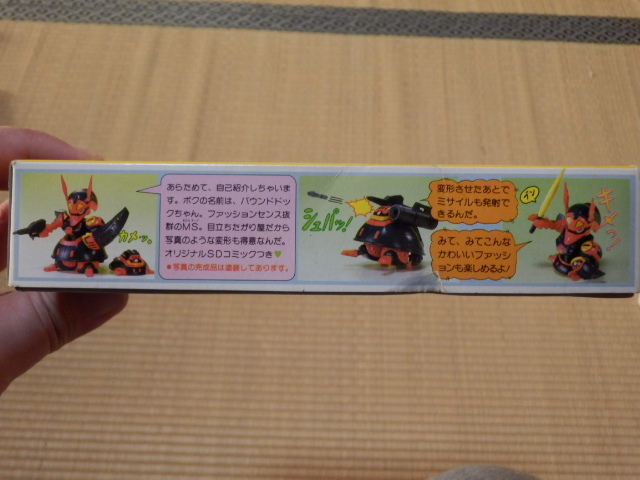 カメッ。
あらためて、自己紹介しちゃいま
す。ボクの名前は、バウンドドッ
クちゃん。ファッションセンス抜
群のMS。目立ちたがり屋だから
写真のような変形も得意なんだ。
オリジナルSDコミックつき♥
★写真の完成品は塗装してあります。
シュパッ!
変形させたあとで
ミサイルも発射で
きるんだ。
みて、みてこんな
かわいいファッシ
ョンも楽しめるよ!